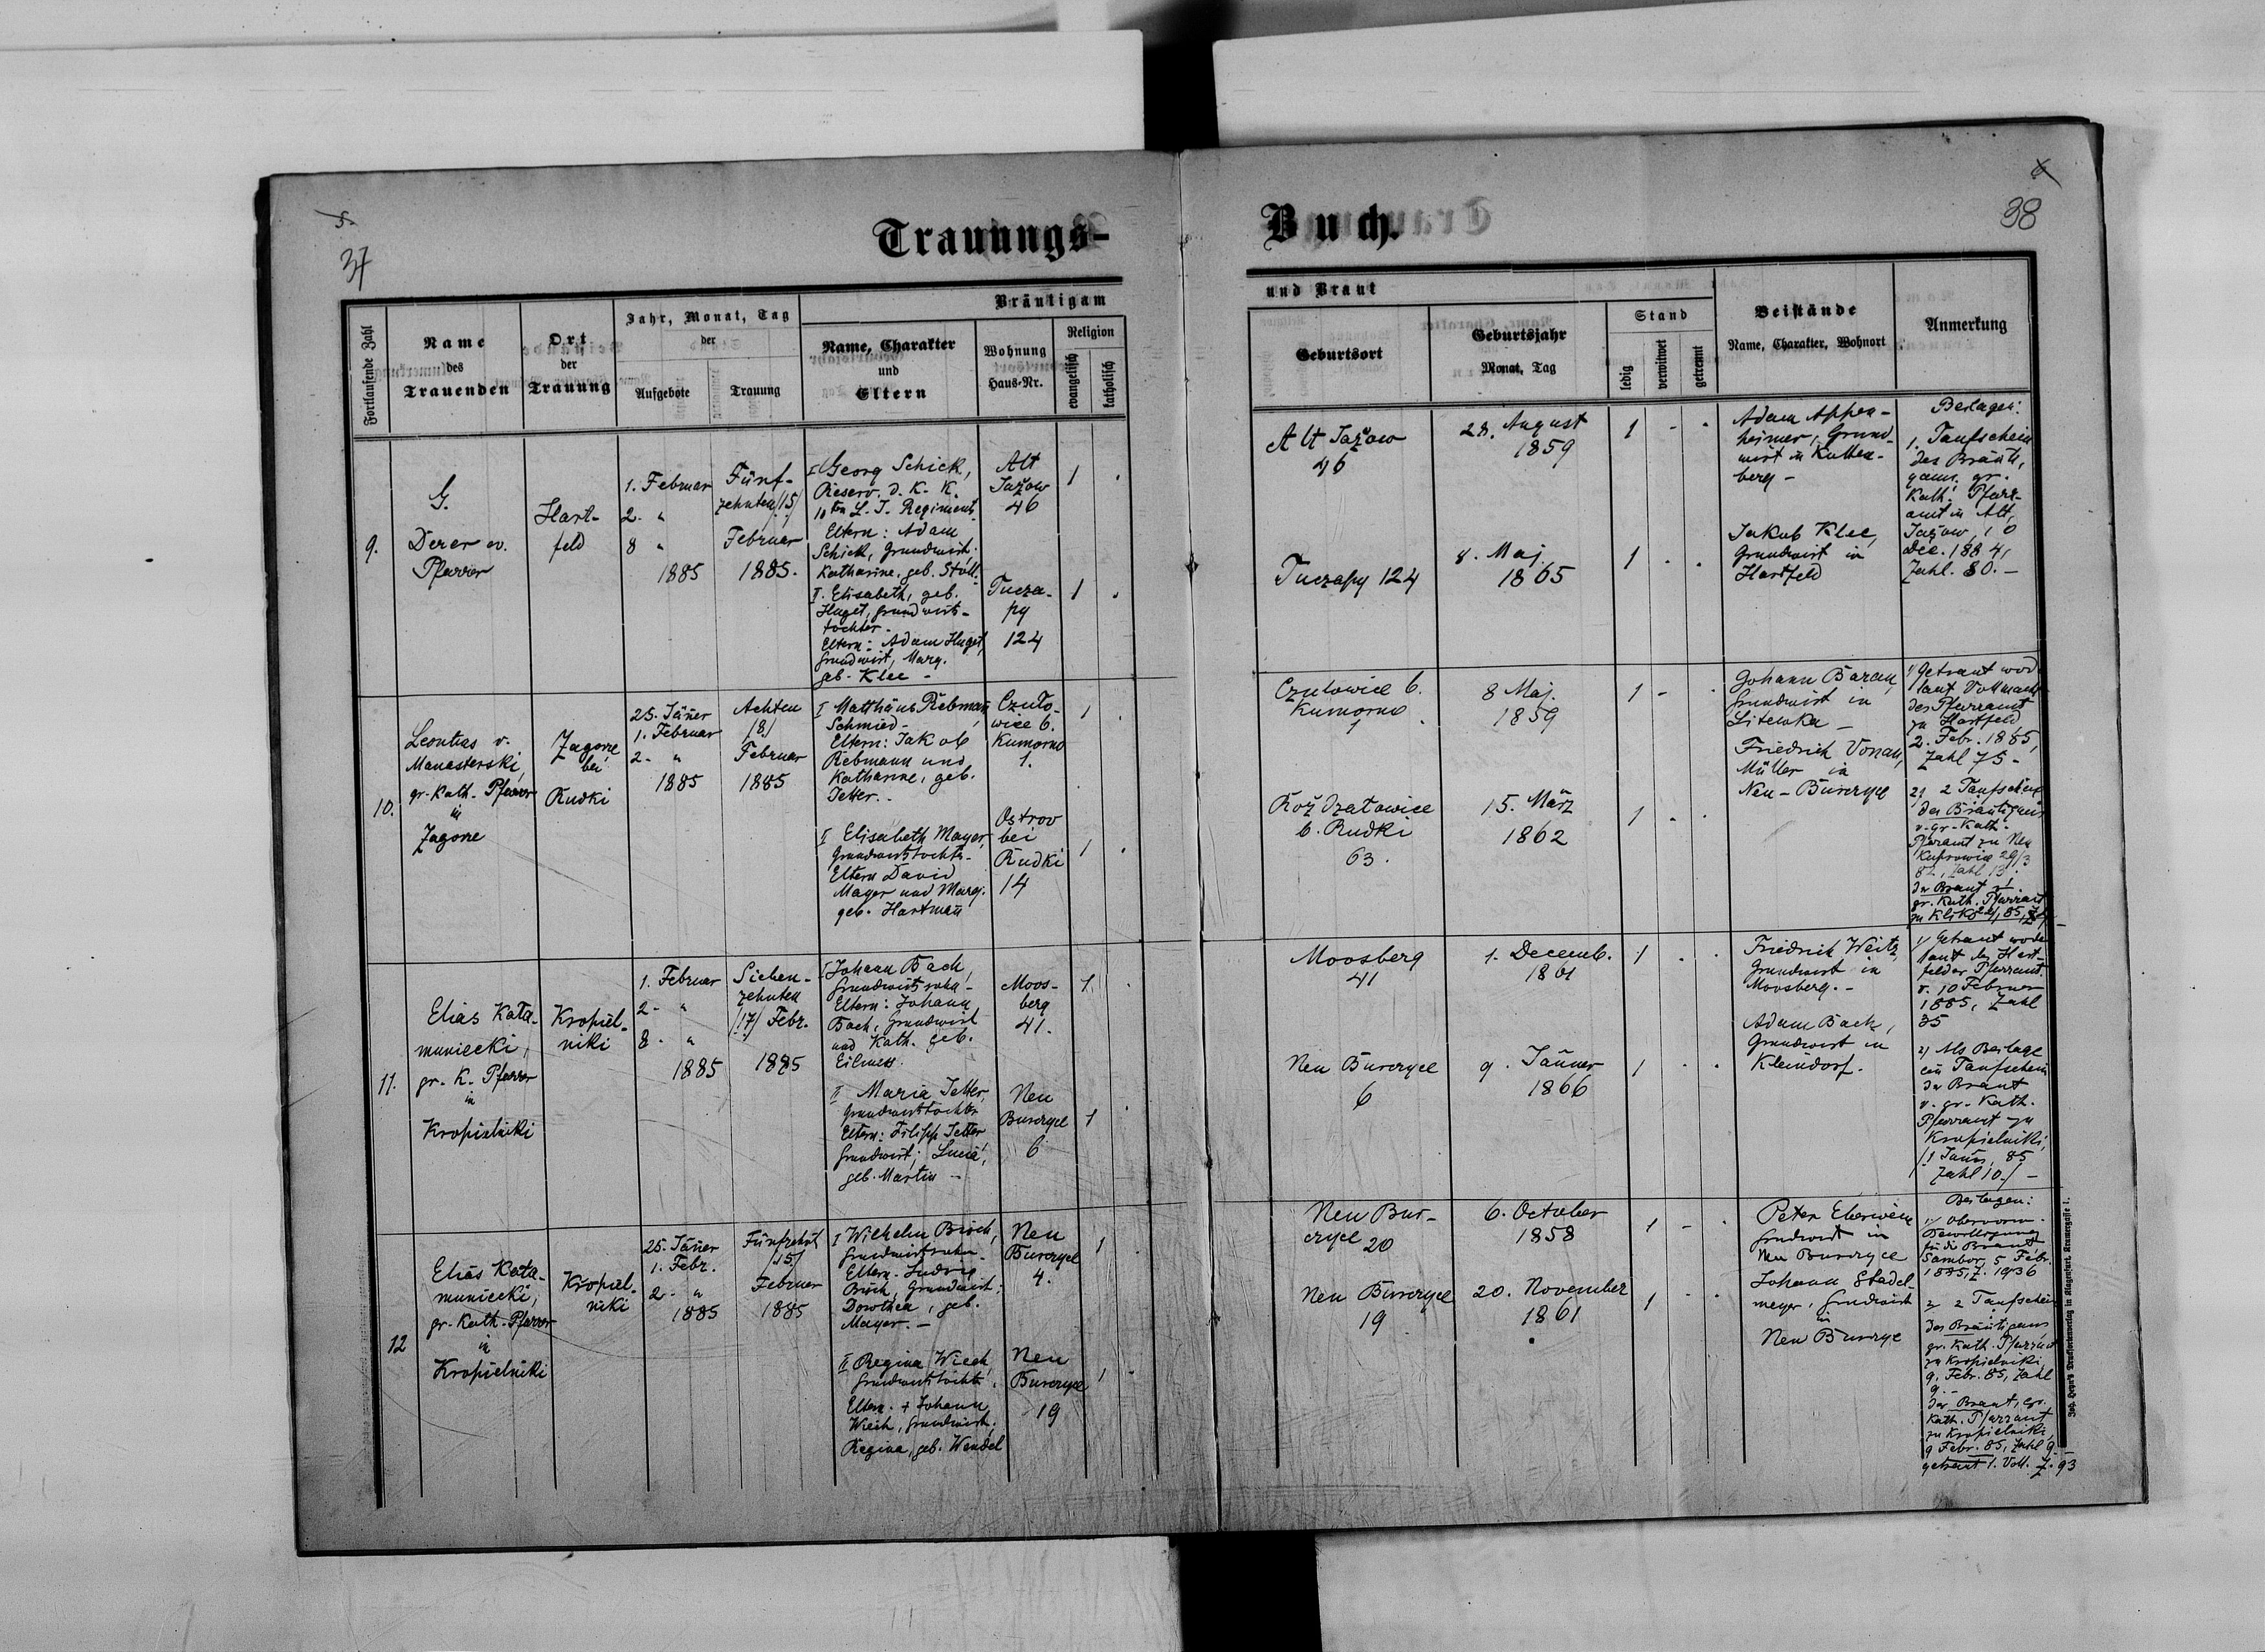 5
37
Trauungs-
Fortlaufende Zahl
Name
des
Trauenden
Ort
der
Trauung
Jahr, Monat, Tag
der
Aufgebote
Trauung
Bräutigam
Name, Charakter
und
Eltern
Wohnung
Haus-Nr.
Religion
evangelisch
katholisch
9.
G.
Derer ev.
Pfarrer
Hart-
feld
1. Februar
2. "
8 "
1885
Fünf-
zehnten /15/
Februar
1885.
I Georg Schick,
Reserv. d. K. K.
10ten L. I. Regiments
Eltern: Adam
Schick, Grundwirt,
Katharine, geb. Stoll.
II. Elisabeth, geb.
Huget, Grundwirts-
tochter -
Eltern: Adam Huget,
Grundwirt, Marg.
geb. Klee -
Alt
Jažow
46
Tucza-
py
124
1 .
1 .
10.
Leontius v.
Manasterski,
gr. Kath. Pfarrer
in
Zagorze
Zagorze
bei
Rudki
25. Jäner
1. Februar
2. "
1885
Achten
/8/
Februar
1885
I Matthäus Rebman,
Schmied -
Eltern: Jakob
Rebmann und
Katharine, geb.
Jetter. -
II Elisabeth Mayer,
Grundwirtstochter -
Eltern David
Mayer und Marg.
geb. Hartmañ
Czuło-
wice b.
Kumorno
1.
Ostrov
bei
Rudki
14
1 .
1 .
11.
Elias Kata-
muniecki,
gr. K. Pfarrer
in
Kropielniki
Kropiel-
niki
1. Februar
2. "
8. "
1885
Sieben-
zehnten
/17/ Febr.
1885
I Johann Bach,
Grundwirtssohn -
Eltern: Johann
Bach, Grundwirt
und Kath. geb.
II Maria Jetter,
Grundwirtstochter
Eltern: Filipp Jetter
Grundwirt; Lucia,
geb. Martin -
Moos-
berg
41.
Neu
Burczyce
6
1 .
1 .
12
Elias Kata-
muniecki,
gr. Kath. Pfarrer
in
Kropielniki
Kropiel-
niki
25. Jäner
1. Febr.
2. "
1885
Fünfzehnt
/15/
Februar
1885
I Wilhelm Busch,
Grundwirtssohn -
Eltern: Ludwig
Busch, Grundwirt;
Dorothea, geb.
Mayer. -
II Regina Wiech,
Grundwirtstochter.
Eltern: + Johann
Wiech, Grundwirt,
Regina, geb. Wendel
Neu
Burczyce
4.
Neu
Burczyce
19
1 .
1 .
Buch.
6
38
und Braut
Geburtsort
Geburtsjahr
Monat, Tag
Stand
ledig
verwitwet
getrennt
Beistände
Name, Charakter, Wohnort
Anmerkung
Alt Jažow
46
28. August
1859
1 - .
Adam Appen-
heimer, Grund-
wirt in Kutten-
berg -
Beilagen:
1. Taufschein
des Bräuti-
gams, gr.
Kath. Pfarr-
amt in Alt
Jažow, 10
Dec. 1884,
Zahl. 80. -
Tuczapy 124
8. Maj
1865
1 . .
Jakob Klee,
Grundwirt in
Hartfeld
Czulowice b.
Kumorno
1
8 Maj.
1859
1 - .
Johann Baran,
Grundwirt in
Litewka -
Friedrich Vonau,
Müller in
Neu-Burczyce
1/ Getraut word
laut Vollmacht
des Pfarramts
zu Hartfeld
2. Febr. 1885,
Zahl 75 -
2/ 2 Taufscheine
des Bräutigams
v. gr. Kath.
Pfarramt zu
der Braut v.
gr. Kath. Pfarramt
Kož dzałowice
b. Rudki
63.
15. März
1862
1 . .
Moosberg
41
1. Decemb.
1861
1 . .
Friedrich Weitz,
Grundwirt in
Moosberg. -
Adam Bach,
Grundwirt in
Kleindorf.
1/ Getraut worde
laut des Hart-
felder Pfarramt.
v. 10 Februar
1885, Zahl
85
2/ Als Beilage
ein Taufschein
der Braut
v. gr. Kath.
Pfarramt zu
Kropielniki,
Zahl 10/ -
Neu Burczyce
6
9. Jänner
1866
1 . .
Neu Bur-
czyce 20
6. October
1858
1 - .
Peter Eberwein
Grundwirt in
Neu Burczyce
Johann Stadel-
meyer, Grundwirt
in
Neu Burczyce
Beilagen:
Bewilligung
für die Braut
Sambor, 5 Febr.
1885, Z. 1936
2/ 2 Taufschein
des Bräutigams
gr. Kath. Pfarramt
zu Kropielniki
9. Febr. 85, Zahl
9. -
der Braut, gr.
Kath. Pfarramt
zu Kropielniki,
9 Febr. 85, Zahl 9. -
getraut l. Voll. Z. 93
Neu Burczyce
19
20. November
1861
1 - .